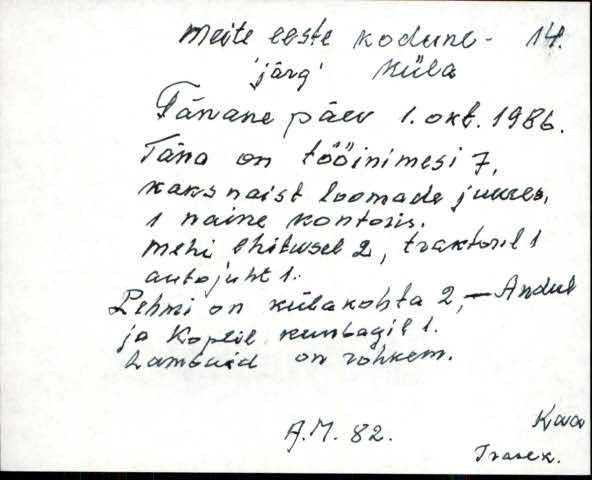 Meite eeste kodune - 14.
'järg' küla
Tänane päev 1. okt. 1986.
Täna on tööinimesi 7,
kaks naist loomade juures,
1 naine kontoris.
mehi ehitusel 2, traktoril 1
autojuht 1.
Lehmi on külakohta 2, - Andul
ja Koplil 1.
Lambaid on rohkem.
A.M. 82.